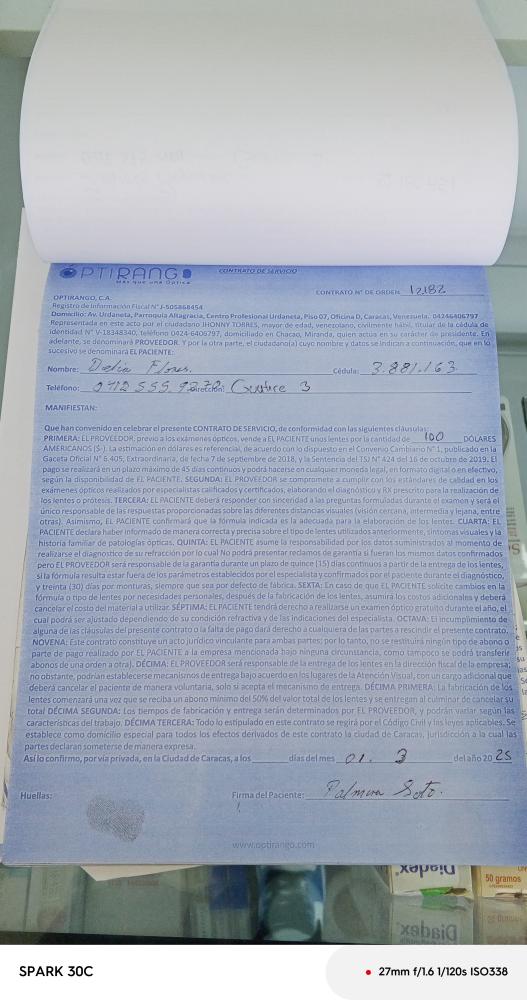 OPTIRANGO
Más que una Óptica
CONTRATO DE SERVICIO
CONTRATO N° DE ORDEN: 12182
OPTIRANGO, C.A.
Registro de Información Fiscal N° J-505868454
Domicilio: Av. Urdaneta, Parroquia Altagracia, Centro Profesional Urdaneta, Piso 07, Oficina D, Caracas, Venezuela. 04246406797
Representada en este acto por el ciudadano JHONNY TORRES, mayor de edad, venezolano, civilmente hábil, titular de la cédula de
identidad N° V-18348340, teléfono 0424-6406797, domiciliado en Chacao, Miranda, quien actua en su carácter de presidente. En
adelante, se denominará PROVEEDOR. Y por la otra parte, el ciudadano(a) cuyo nombre y datos se indican a continuación, que en lo
sucesivo se denominará EL PACIENTE:
Nombre: Delia Flores. Cédula: 3.881.163
Teléfono: 0412 555.9272 Dirección: 3
MANIFIESTAN:
Que han convenido en celebrar el presente CONTRATO DE SERVICIO, de conformidad con las siguientes cláusulas:
PRIMERA: EL PROVEEDOR, previo a los exámenes ópticos, vende a EL PACIENTE unos lentes por la cantidad de 100 DÓLARES
AMERICANOS ($-). La estimación en dólares es referencial, de acuerdo con lo dispuesto en el Convenio Cambiario N° 1, publicado en la
Gaceta Oficial N° 6.405, Extraordinaria, de fecha 7 de septiembre de 2018, y la Sentencia del TSJ N° 424 del 16 de octubre de 2019. El
pago se realizará en un plazo máximo de 45 días continuos y podrá hacerse en cualquier moneda legal, en formato digital o en efectivo,
según la disponibilidad de EL PACIENTE. SEGUNDA: EL PROVEEDOR se compromete a cumplir con los estándares de calidad en los
exámenes ópticos realizados por especialistas calificados y certificados, elaborando el diagnóstico y RX prescrito para la realización de
los lentes o prótesis. TERCERA: EL PACIENTE deberá responder con sinceridad a las preguntas formuladas durante el examen y será el
único responsable de las respuestas proporcionadas sobre las diferentes distancias visuales (visión cercana, intermedia y lejana, entre
otras). Asimismo, EL PACIENTE confirmará que la fórmula indicada es la adecuada para la elaboración de los lentes. CUARTA: EL
PACIENTE declara haber informado de manera correcta y precisa sobre el tipo de lentes utilizados anteriormente, síntomas visuales y la
historia familiar de patologías ópticas. QUINTA: EL PACIENTE asume la responsabilidad por los datos suministrados al momento de
realizarse el diagnostico de su refracción por lo cual No podrá presentar reclamos de garantía si fueran los mismos datos confirmados
pero EL PROVEEDOR será responsable de la garantía durante un plazo de quince (15) días continuos a partir de la entrega de los lentes,
si la fórmula resulta estar fuera de los parámetros establecidos por el especialista y confirmados por el paciente durante el diagnóstico,
y treinta (30) días por monturas, siempre que sea por defecto de fábrica. SEXTA: En caso de que EL PACIENTE solicite cambios en la
fórmula o tipo de lentes por necesidades personales, después de la fabricación de los lentes, asumirá los costos adicionales y deberá
cancelar el costo del material a utilizar. SÉPTIMA: EL PACIENTE tendrá derecho a realizarse un examen óptico gratuito durante el año, el
cual podrá ser ajustado dependiendo de su condición refractiva y de las indicaciones del especialista. OCTAVA: El incumplimiento de
alguna de las cláusulas del presente contrato o la falta de pago dará derecho a cualquiera de las partes a rescindir el presente contrato.
NOVENA: Este contrato constituye un acto jurídico vinculante para ambas partes; por lo tanto, no se restituirá ningún tipo de abono o
parte de pago realizado por EL PACIENTE a la empresa mencionada bajo ninguna circunstancia, como tampoco se podrá transferir
abonos de una orden a otra). DÉCIMA: EL PROVEEDOR será responsable de la entrega de los lentes en la dirección fiscal de la empresa;
no obstante, podrían establecerse mecanismos de entrega bajo acuerdo en los lugares de la Atención Visual, con un cargo adicional que
deberá cancelar el paciente de manera voluntaria, solo si acepta el mecanismo de entrega. DÉCIMA PRIMERA: La fabricación de los
lentes comenzará una vez que se reciba un abono mínimo del 50% del valor total de los lentes y se entregan al culminar de cancelar su
total DÉCIMA SEGUNDA: Los tiempos de fabricación y entrega serán determinados por EL PROVEEDOR, y podrán variar según las
características del trabajo. DÉCIMA TERCERA: Todo lo estipulado en este contrato se regirá por el Código Civil y las leyes aplicables. Se
establece como domicilio especial para todos los efectos derivados de este contrato la ciudad de Caracas, jurisdicción a la cual las
partes declaran someterse de manera expresa.
Así lo confirmo, por vía privada, en la Ciudad de Caracas, a los días del mes 01. 3 del año 20 25
Huellas: Firma del Paciente: Palmira Soto.
www.optirango.com
Diadex
50 gramos
Diadex
SPARK 30C
27mm f/1.6 1/120s ISO338